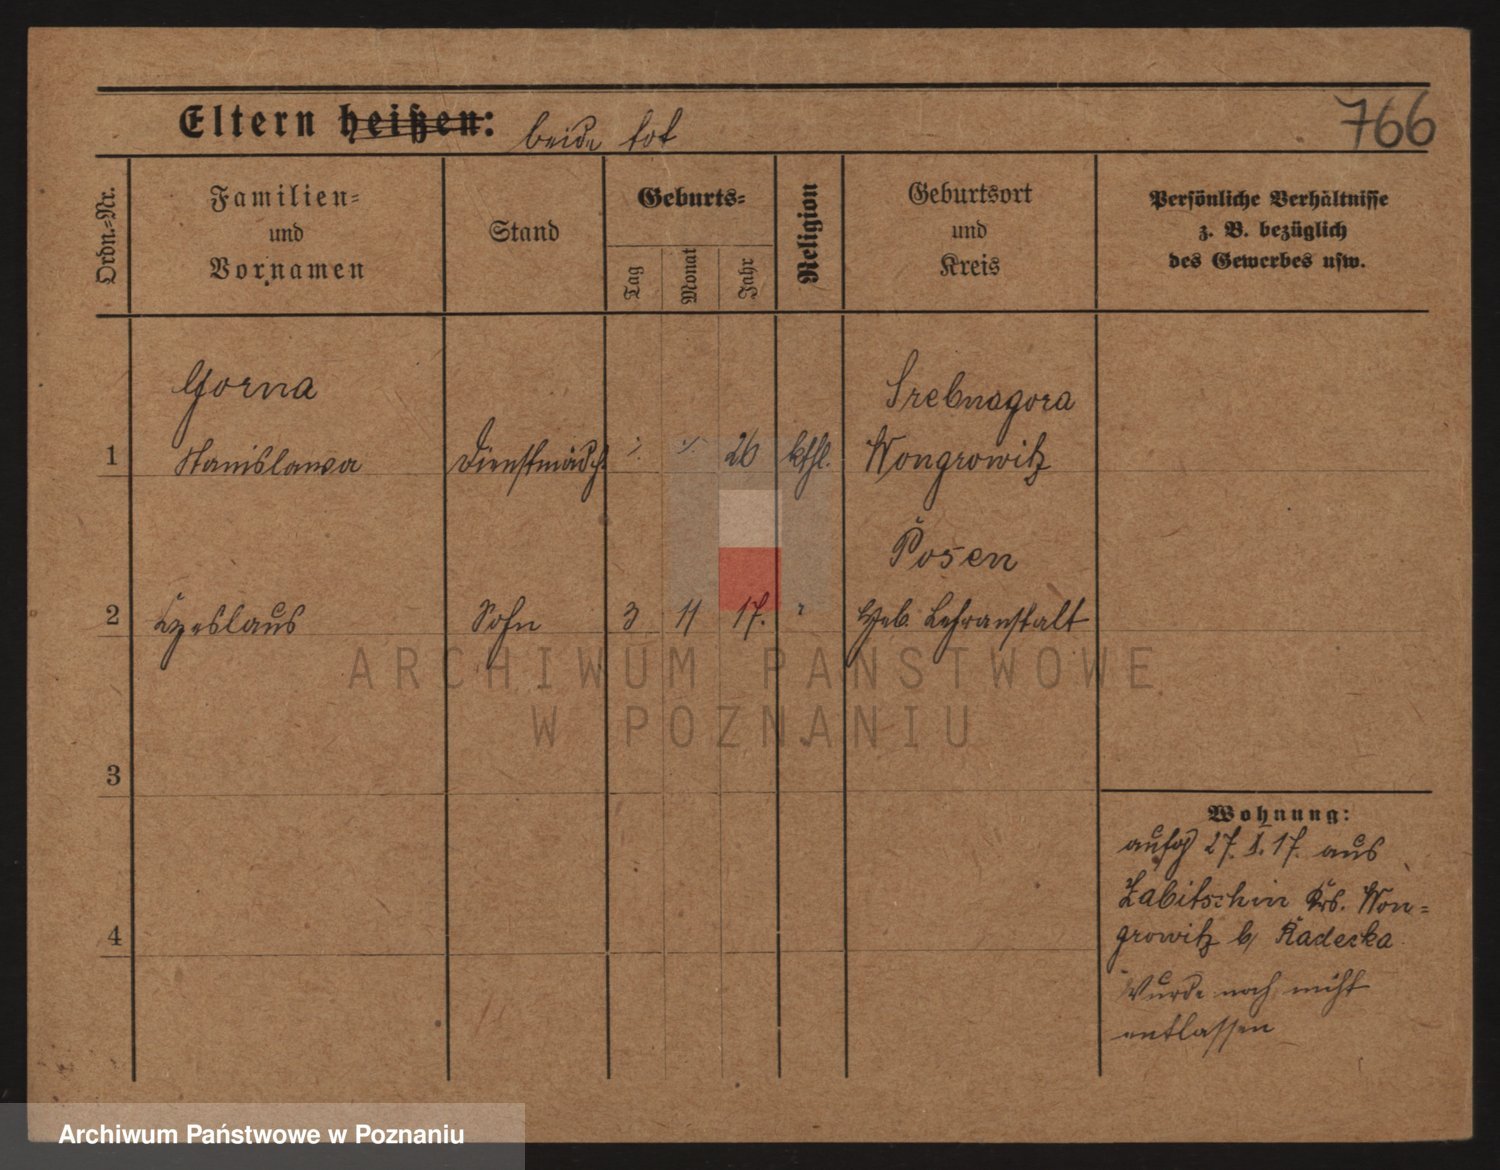 Eltern heißen: beide tot
766
Ordn.-Nr.
Familien-
und
Vornamen
Stand
Geburts-
Tag
Monat
Jahr
Religion
Geburtsort
und
Kreis
Persönliche Verhältnisse
z. B. bezüglich
des Gewerbes usw.
Gorna
Srebnagora
1 Stanislawa Dienstmädch 26 kthl. Wongrowitz
Posen
2 Czeslaus Sohn 3 11 17. " Heb. Lehranstalt
3
4
Wohnung:
aufg 27. X. 17. aus
Zabitschin Krs. Won-
growitz b/ Kadecka
Wurde noch nicht
entlassen
ARCHIWUM PAŃSTWOWE
W POZNANIU
Archiwum Państwowe w Poznaniu